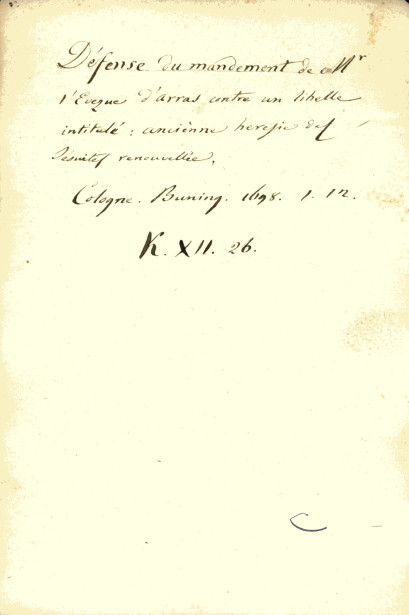 Défense du mandement de Mr
l'Eveque d'arras contre un libelle
intitulé : ancienne heresie des
Jésuites renouvellée.
Cologne. Buning. 1698. 1. 12.
K. XII. 26.